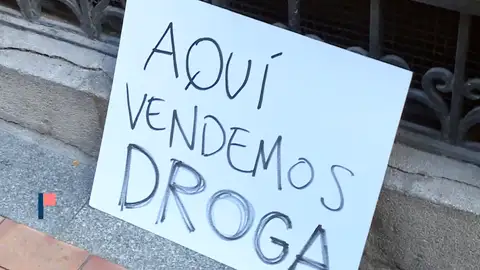 AQUÍ
VENDEMOS
DROGA